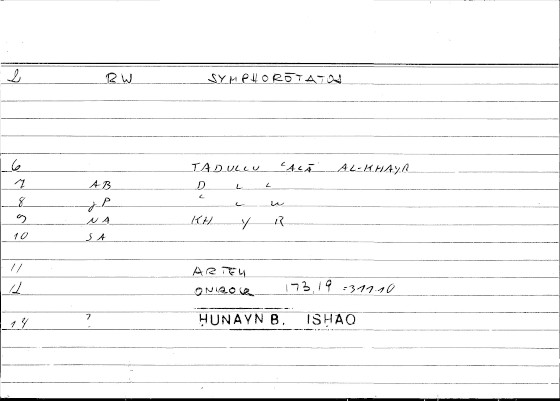 2 RW SYMPHORŌTATOS
6 TADULLU ʿALĀ AL-KHAYR
7 AB D L L
8 JP ʿ L W
9 NA KH Y R
10 SA
11 ARTEM
12 ONIROCR 173,19 = 311.10
14 ? HUNAYN B. ISHAO